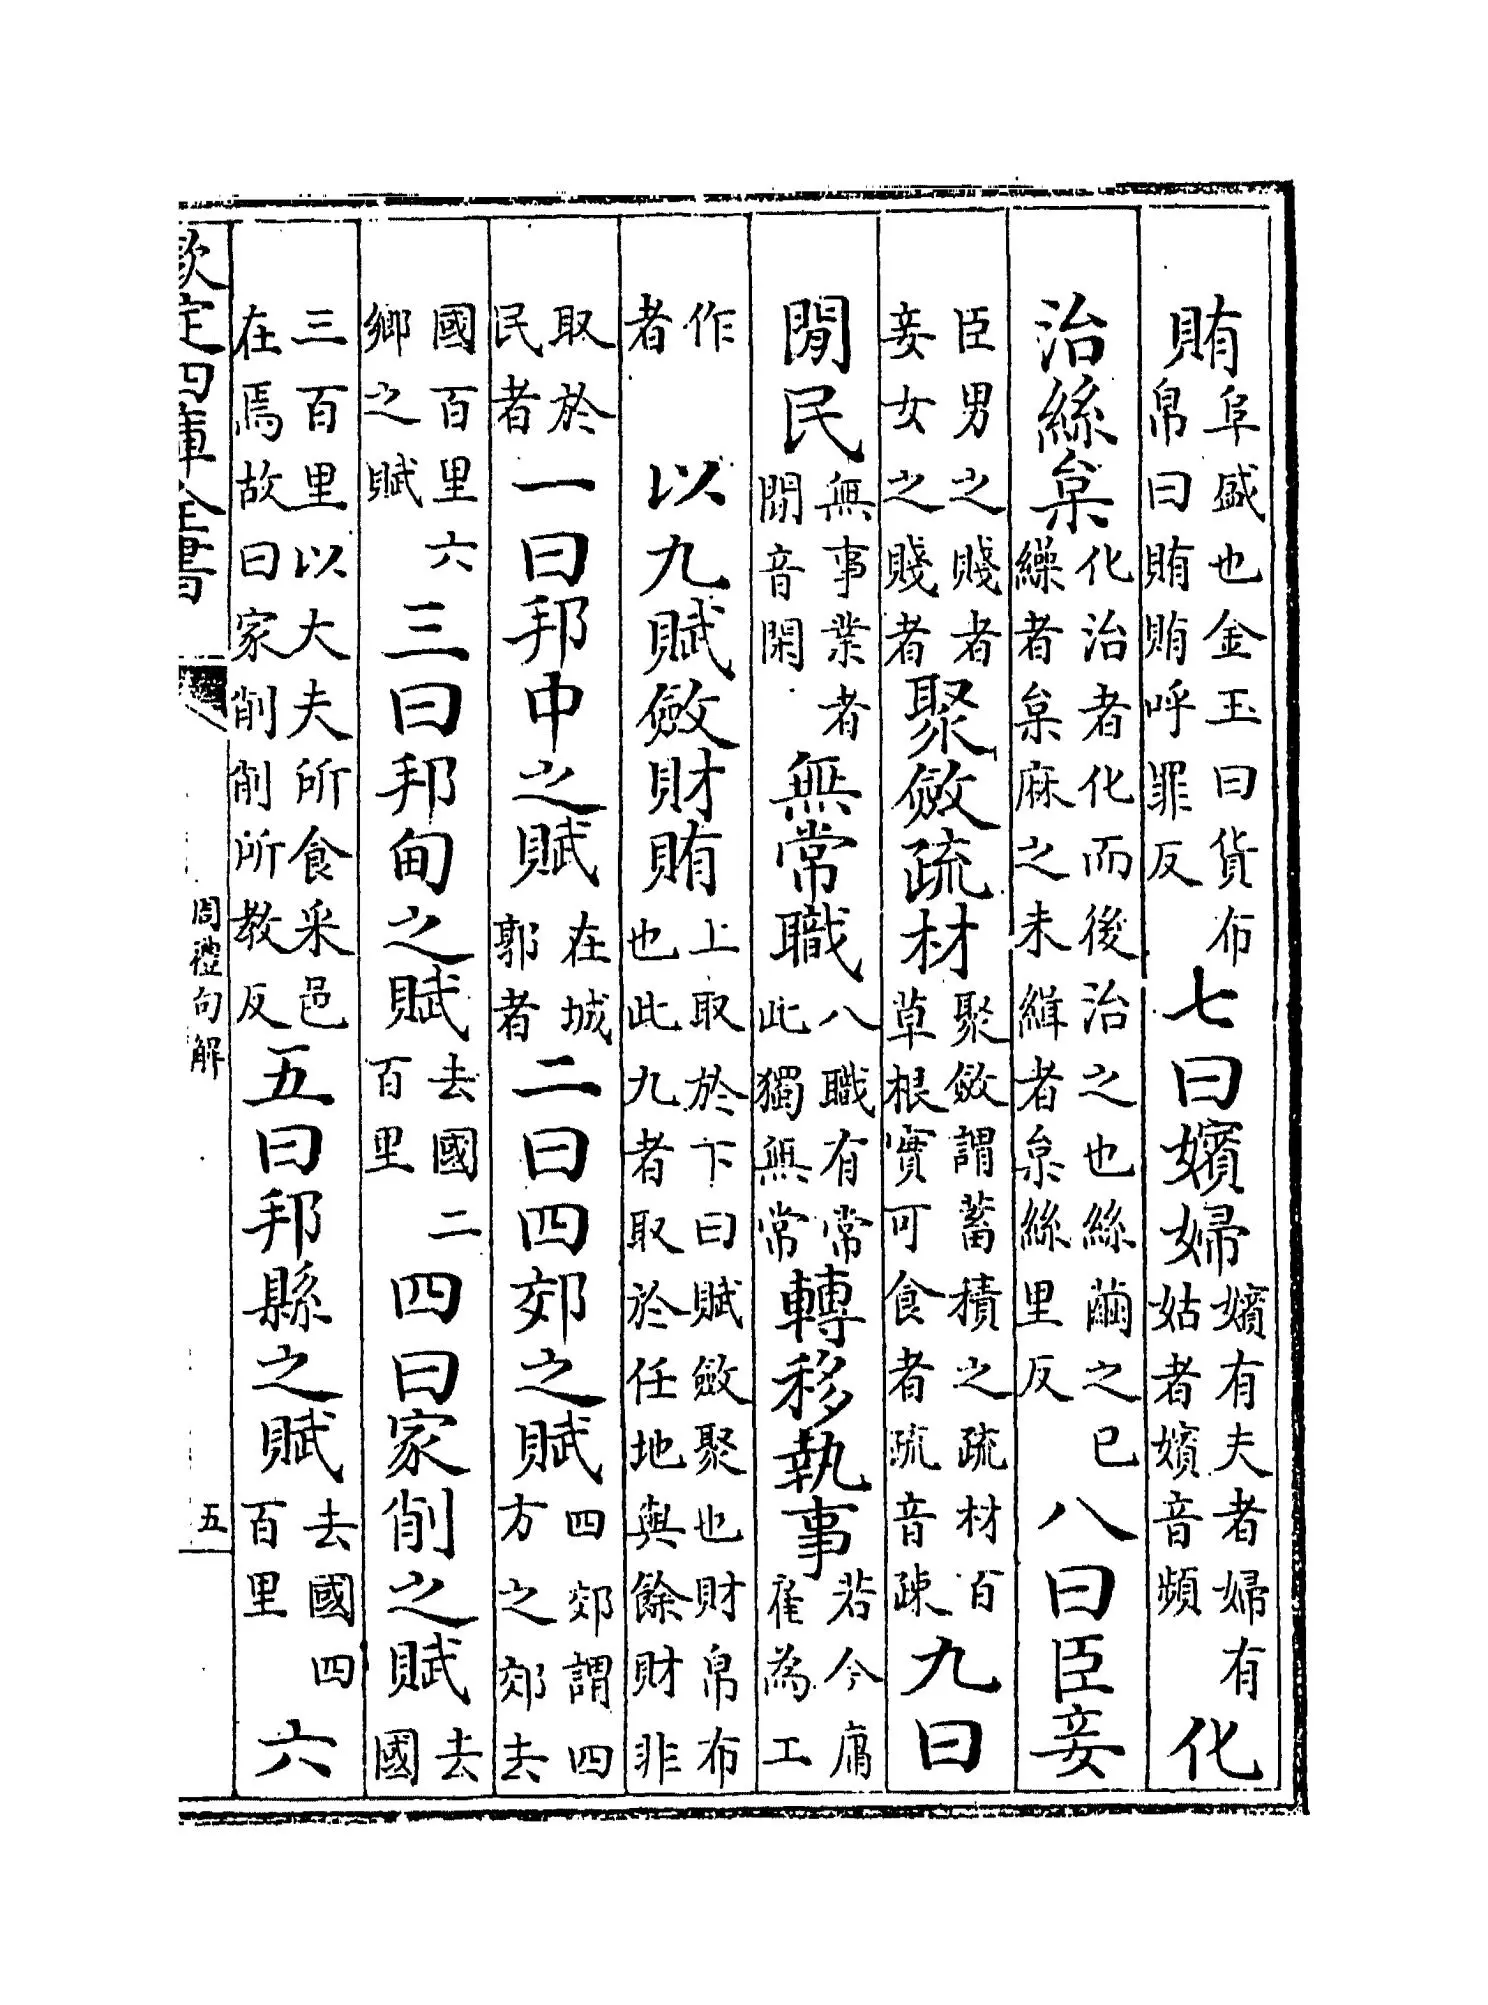 賄阜盛也金玉曰貨布帛曰賄賄呼罪反七曰嬪婦嬪有夫者婦有姑者嬪音頻化
治絲枲化治者化而後治之也絲繭之已繰者枲麻之未緝者枲絲里反八曰臣妾
臣男之賤者妾女之賤者聚斂疏材聚斂謂蓄積之疏材百草根實可食者疏音疎九曰
閒民無事業者閒音閑無常職八職有常此獨無常轉移執事若今庸雇為工
作者以九賦斂財賄上取於下曰賦斂聚也財帛布也此九者取於任地與餘財非
取於民者一曰邦中之賦在城郭者二曰四郊之賦四郊謂四方之郊去
國百里六鄉之賦三曰邦甸之賦去國二百里四曰家削之賦去國
三百里以大夫所食采邑在焉故曰家削削所教反五曰邦縣之賦去國四百里六
欽定四庫全書
周禮句解
五